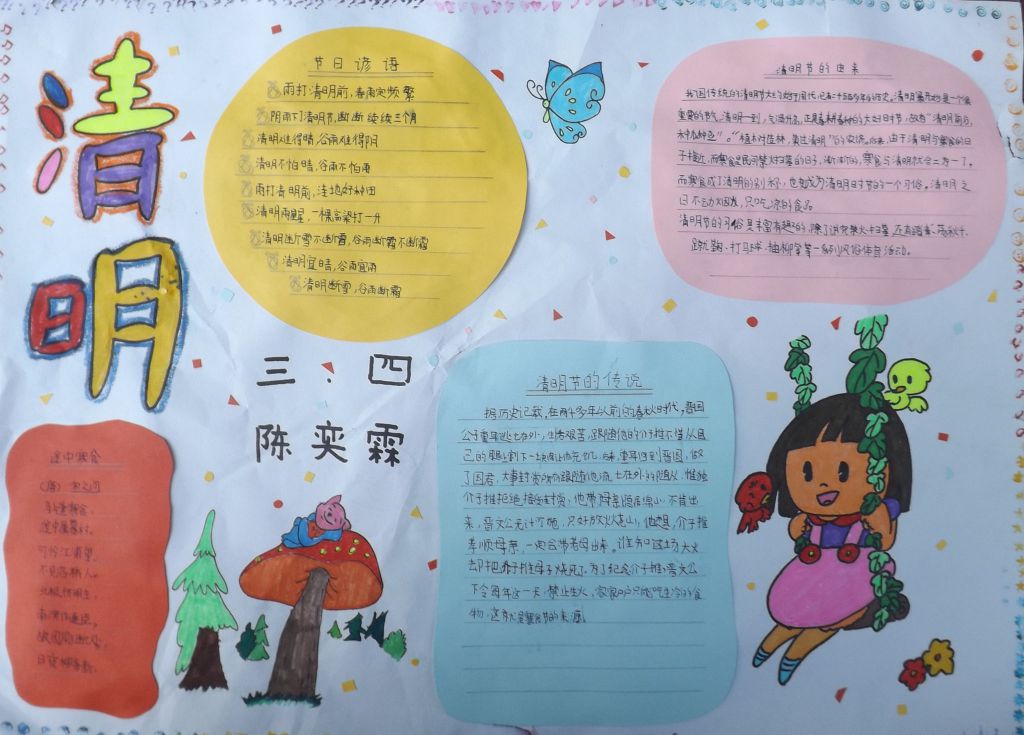 清
明
节日谚语
雨打清明前,春雨定频繁
阴雨下了清明节,断断续续三个月
清明难得晴,谷雨难得阴
清明不怕晴,谷雨不怕雨
雨打清明前,洼地好种田
清明雨星星,一棵高粱打一升
清明断雪不断霜,谷雨断霜不断霜
清明宜晴,谷雨宜雨
清明断雪,谷雨断霜
清明节的由来
我国传统的清明节大约始于周代,已有二千五百多年的历史。清明最开始是一个很
重要的节气,清明一到,气温升高,正是春耕春种的大好时节,故有"清明前后,
种瓜种豆"。"植树造林,莫过清明"的农谚。后来,由于清明与寒食的日
子接近,而寒食是民间禁火扫墓的日子,渐渐的,寒食与清明就合二为一了。
而寒食成了清明的别称,也变成为清明时节的一个习俗。清明之
日不动烟火,只吃凉的食品
清明节的习俗是丰富有趣的,除了讲究禁火扫墓,还有踏青、荡秋千、
蹴鞠、打马球、插柳等一系列风俗体育活动。
三.四
陈奕霖
清明节的传说
据历史记载,在两千多年以前的春秋时代,晋国
公子重耳逃亡在外,生活艰苦,跟随他的介子推不惜从自
己的腿上割下一块肉让他充饥。后来,重耳回到晋国,做
了国君,大事封赏所有跟随他流亡在外的随从,惟独
介子推拒绝接受封赏,他带母亲隐居绵山,不肯出
来,晋文公无计可施,只好放火烧山,他想,介子推
孝顺母亲,一定会带着母出来。谁知这场大火
却把介子推母子烧死了。为了纪念介子推,晋文公
下令每年这一天,禁止生火,家家户户只能吃生冷的食
物,这就是寒食节的来源。
途中寒食
(唐)宋之问
马上逢寒食
途中属暮春。
可怜江浦望,
不见洛桥人。
北极怀明主,
南溟作逐臣。
故园肠断处,
日夜柳条新。